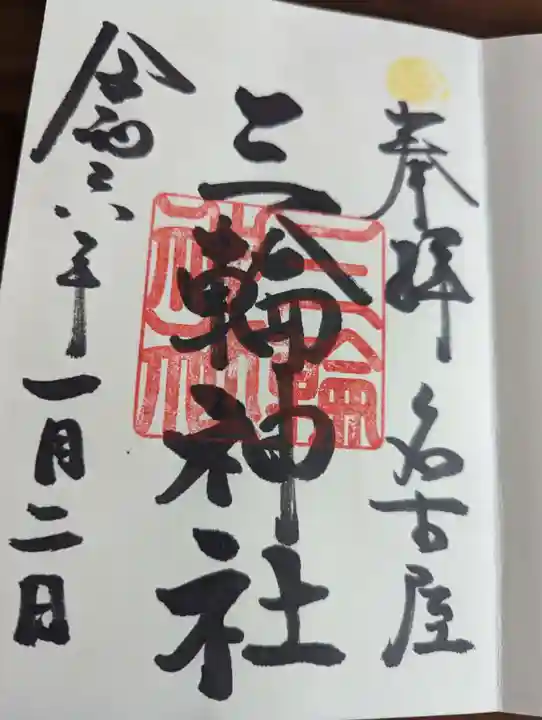 奉拝 名古屋
三輪神社
三輪神社
令和六年一月二日